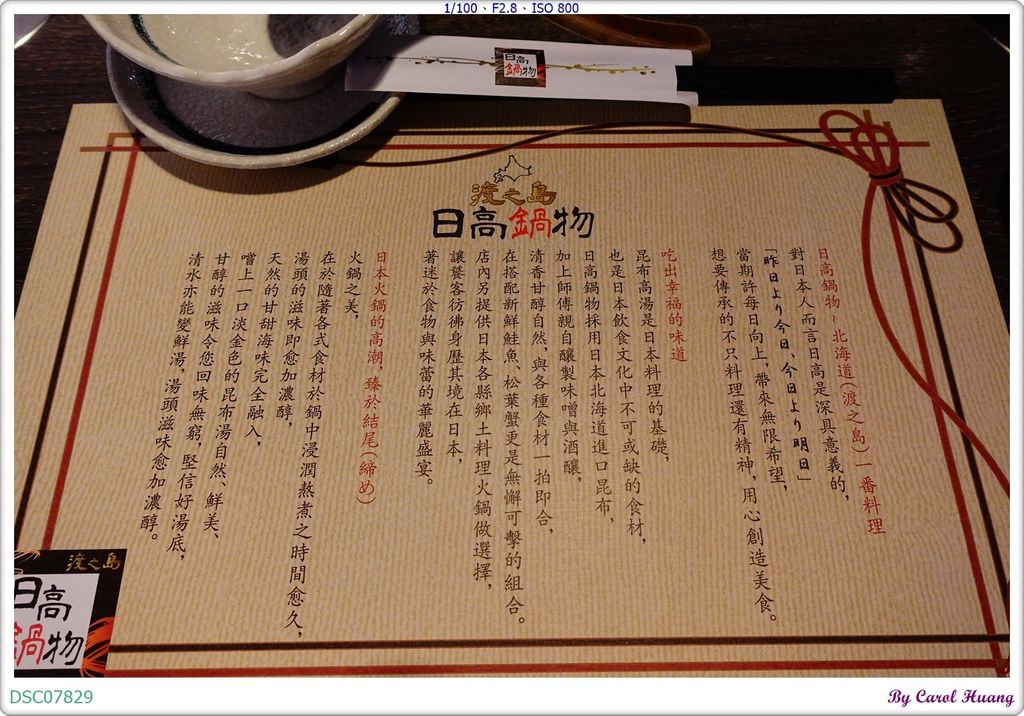 1/100、F2.8、ISO 800
日高
鍋物
渡之島
日高鍋物
日高鍋物~北海道(渡之島)一番料理
對日本人而言日高是深具意義的,
「昨日より今日、今日より明日」
當期許每日向上,帶來無限希望,
想要傳承的不只料理還有精神,用心創造美食。
吃出幸福的味道
昆布高湯是日本料理的基礎,
也是日本飲食文化中不可或缺的食材,
日高鍋物採用日本北海道進口昆布,
加上師傅親自釀製味噌與酒釀,
清香甘醇自然,與各種食材一拍即合,
在搭配新鮮鮭魚、松葉蟹更是無懈可擊的組合。
店內另提供日本各縣鄉土料理火鍋做選擇,
讓饕客彷彿身歷其境在日本,
著迷於食物與味蕾的華麗盛宴。
日本火鍋的高潮,臻於結尾(締め)
火鍋之美,
在於隨著各式食材於鍋中浸潤熬煮之時間愈久,
湯頭的滋味即愈加濃醇,
天然的甘甜海味完全融入,
嚐上一口淡金色的昆布湯自然、鮮美、
甘醇的滋味令您回味無窮,堅信好湯底,
清水亦能變鮮湯,湯頭滋味愈加濃醇。
渡之島
日高
鍋物
DSC07829
By Carol Huang